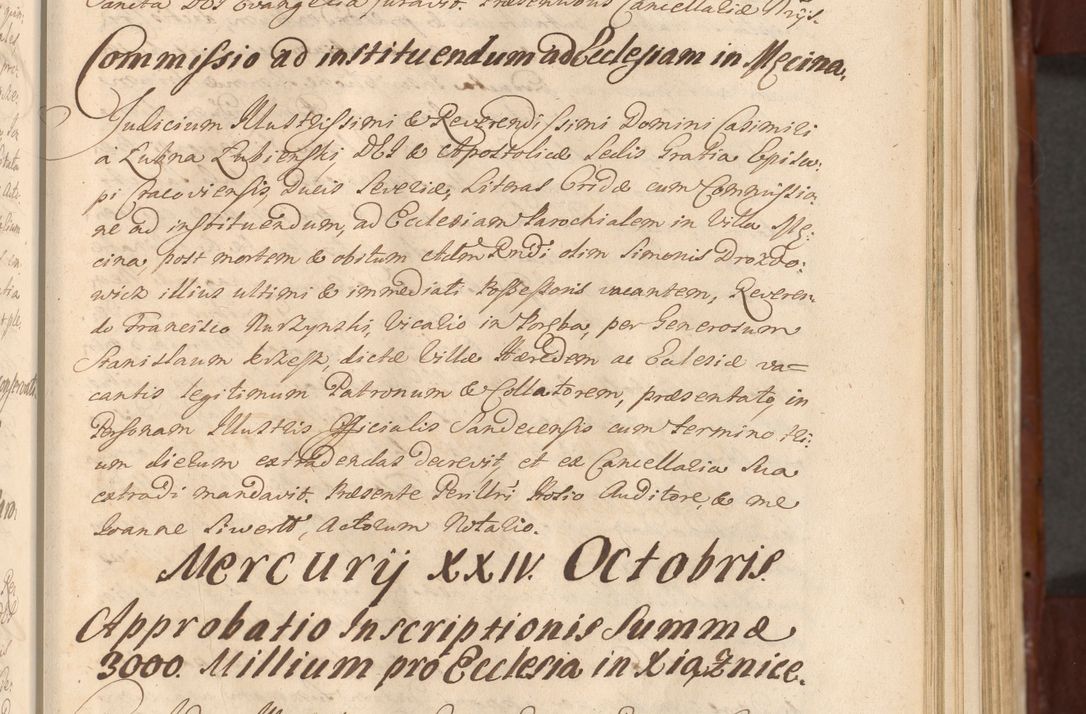 Sancta DEI Evangelia juravit. Præsentibus Cancellariæ
Commissio ad instituendum ad Ecclesiam in Mecina.
Judicium Illustrissimi & Reverendissimi Domini Casimiri
à Lubna Lubienski DEI & Apostolicæ Sedis Gratia Episco-
pi Cracoviensis, Ducis Severiæ, Literas Cridæ cum Commissio-
ne ad instituendum, ad Ecclesiam Parochialem in Villa Me-
cina, post mortem & obitum Rndi olim Simonis Drozdo-
wick illius ultimi & immediati Possessoris vacantem, Reveren-
do Francisco Nurzynski, Vicario in Poręba, per Generosum
Stanislaum Krzesz, dictæ Villæ Hæredem ac Eclesiæ va=
cantis legitimum Patronum & Collatorem, præsentato, in
Personam Illustris Officialis Sandecensis cum termino tri-
um dierum extradendas decrevit, et ex Cancellaria sua
extradi mandavit. Præsente Perillri Hosio Auditore, & me
Joanne Siwertt, Actorum Notario.
Mercurij XXIV. Octobris.
Approbatio Inscriptionis Summæ
3000. Millium pro Ecclesia in Xiąznice.